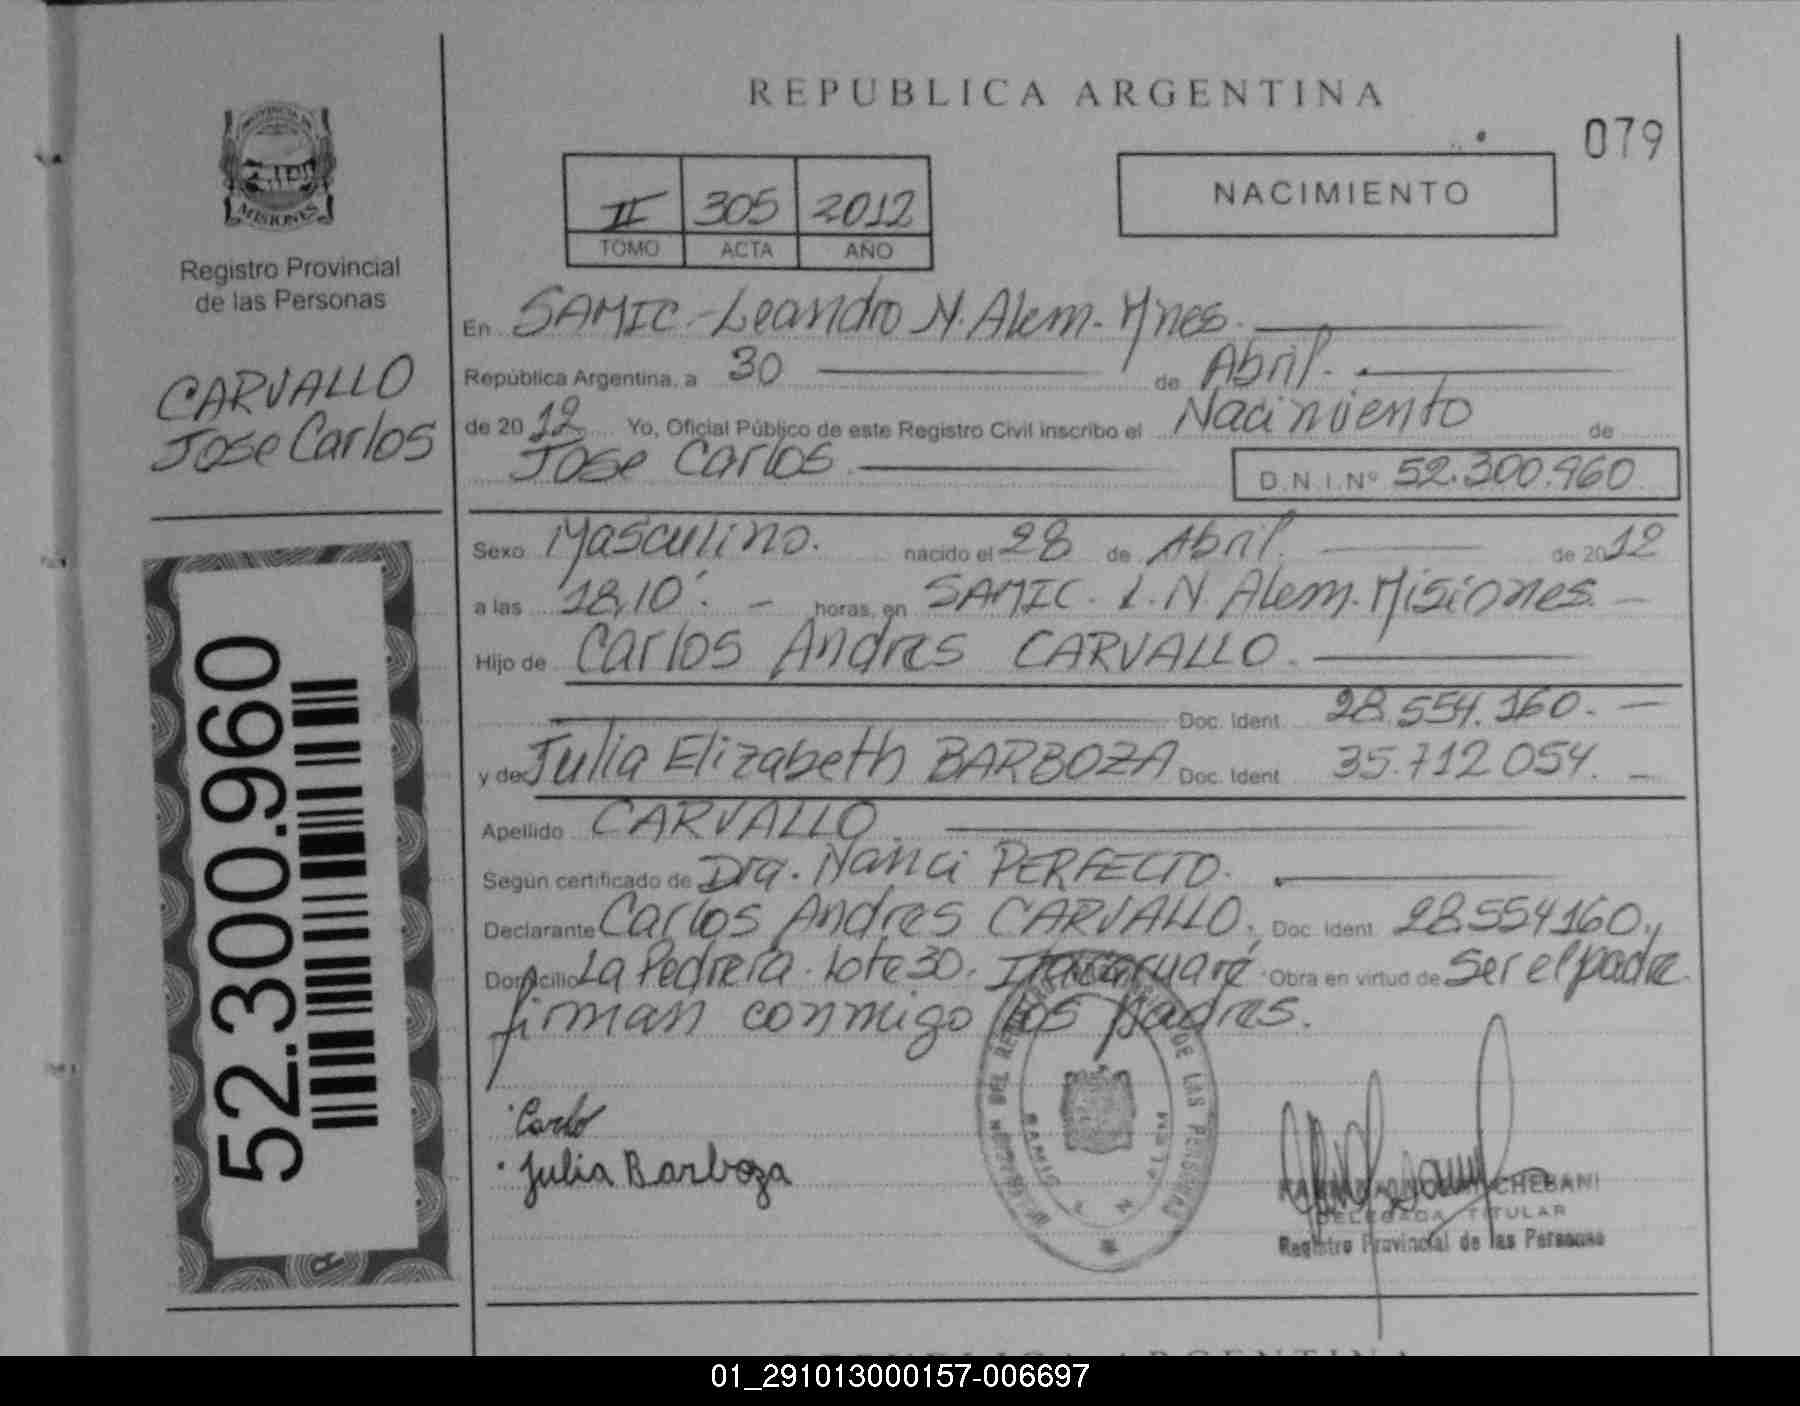 REPUBLICA ARGENTINA
079
NACIMIENTO
II 305 2012
TOMO ACTA AÑO
MISIONES
Registro Provincial
de las Personas
CARVALLO
Jose Carlos
52.300.960
En SAMIC - Leandro N. Alem - Mnes.
República Argentina, a 30 de Abril.
de 2012 Yo, Oficial Público de este Registro Civil inscribo el Nacimiento de
Jose Carlos. D.N.I.Nº 52.300.960
Sexo Masculino. nacido el 28 de Abril. de 2012
a las 18,10'. - horas, en SAMIC. L.N. Alem. Misiones. -
Hijo de Carlos Andres CARVALLO.
Doc. Ident 28.554.160. -
y de Julia Elizabeth BARBOZA Doc. Ident 35.712 054. -
Apellido CARVALLO.
Según certificado de Dra. Nanci PERFECTO.
Declarante Carlos Andres CARVALLO, Doc. Ident 28.554160,
Domicilio La Pedrera. Lote 30. Itacaruaré Obra en virtud de Ser el padre
firman conmigo los padres.
Carlo
Julia Barboza
DE LAS PERSONAS
SAMIC
DELEGADA TITULAR
Registro Provincial de las Personas
REPUBLICA ARGENTINA
01_291013000157-006697